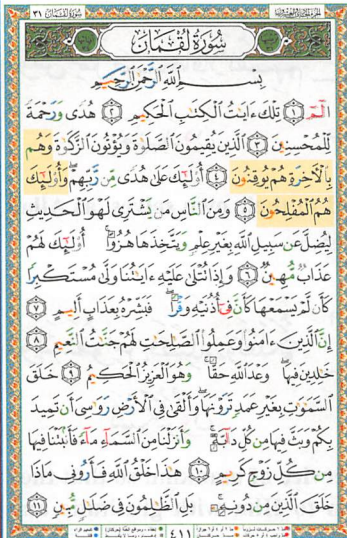 سُورَةُ لُقْمَان ٣١
سُورَةُ لُقْمَانَ
بِسْمِ اللَّهِ الرَّحْمَٰنِ الرَّحِيمِ
الٓمٓ ١ تِلْكَ ءَايَٰتُ الْكِتَٰبِ الْحَكِيمِ ٢ هُدًى وَرَحْمَةً
لِّلْمُحْسِنِينَ ٣ الَّذِينَ يُقِيمُونَ الصَّلَوٰةَ وَيُؤْتُونَ الزَّكَوٰةَ وَهُم
بِالْءَاخِرَةِ هُمْ يُوقِنُونَ ٤ أُو۟لَٰٓئِكَ عَلَىٰ هُدًى مِّن رَّبِّهِمْ ۖ وَأُو۟لَٰٓئِكَ
هُمُ الْمُفْلِحُونَ ٥ وَمِنَ النَّاسِ مَن يَشْتَرِى لَهْوَ الْحَدِيثِ
لِيُضِلَّ عَن سَبِيلِ اللَّهِ بِغَيْرِ عِلْمٍ وَيَتَّخِذَهَا هُزُوًا ۚ أُو۟لَٰٓئِكَ لَهُمْ
عَذَابٌ مُّهِينٌ ٦ وَإِذَا تُتْلَىٰ عَلَيْهِ ءَايَٰتُنَا وَلَّىٰ مُسْتَكْبِرًا
كَأَن لَّمْ يَسْمَعْهَا كَأَنَّ فِىٓ أُذُنَيْهِ وَقْرًا ۖ فَبَشِّرْهُ بِعَذَابٍ أَلِيمٍ ٧
إِنَّ الَّذِينَ ءَامَنُوا۟ وَعَمِلُوا۟ الصَّٰلِحَٰتِ لَهُمْ جَنَّٰتُ النَّعِيمِ ٨
خَٰلِدِينَ فِيهَا ۖ وَعْدَ اللَّهِ حَقًّا ۚ وَهُوَ الْعَزِيزُ الْحَكِيمُ ٩ خَلَقَ
السَّمَٰوَٰتِ بِغَيْرِ عَمَدٍ تَرَوْنَهَا ۖ وَأَلْقَىٰ فِى الْأَرْضِ رَوَٰسِىَ أَن تَمِيدَ
بِكُمْ وَبَثَّ فِيهَا مِن كُلِّ دَآبَّةٍ ۚ وَأَنزَلْنَا مِنَ السَّمَآءِ مَآءً فَأَنۢبَتْنَا فِيهَا
مِن كُلِّ زَوْجٍ كَرِيمٍ ١٠ هَٰذَا خَلْقُ اللَّهِ فَأَرُونِى مَاذَا
خَلَقَ الَّذِينَ مِن دُونِهِۦ ۚ بَلِ الظَّٰلِمُونَ فِى ضَلَٰلٍ مُّبِينٍ ١١
٤١١